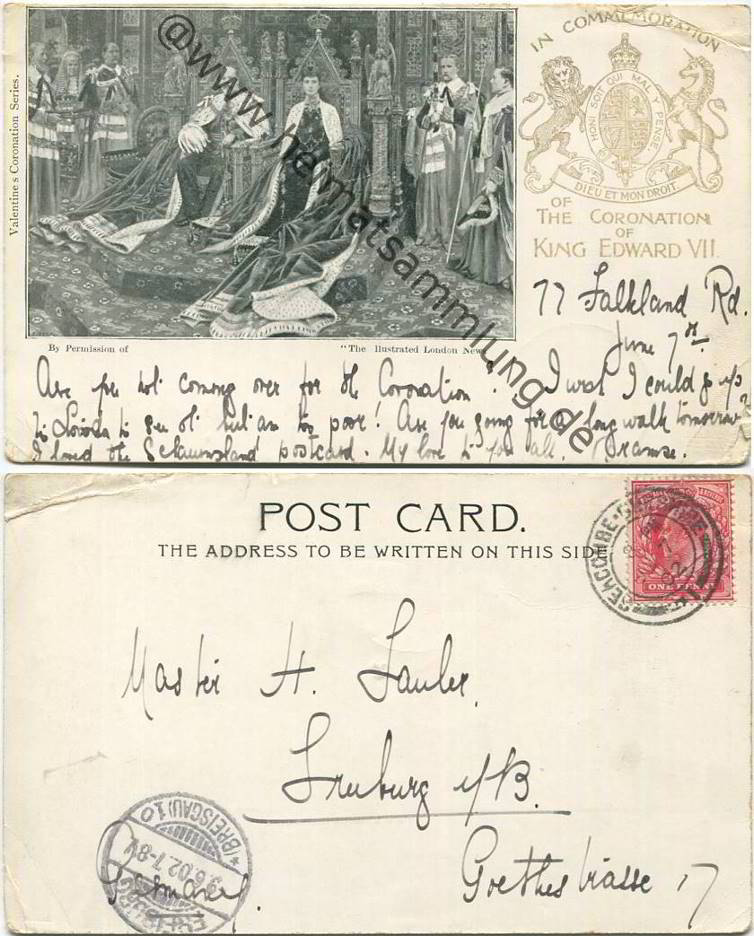 Valentine's Coronation Series.
@www.heimatsammlung.de
IN COMMEMORATION
HONI SOIT QUI MAL Y PENSE
DIEU ET MON DROIT
OF
THE CORONATION
OF
KING EDWARD VII.
By Permission of "The Illustrated London News"
77 Falkland Rd.
June 7th.
Are you not coming over for the Coronation? I wish I could go up
to London to see it but am too poor! Are you going for a long walk tomorrow?
I loved the Schauinsland postcard. My love to you all.
POST CARD.
THE ADDRESS TO BE WRITTEN ON THIS SIDE
ONE PENNY
SEACOMBE
Master H.
Freiburg i/B.
Goethestrasse 17
Germany.
(BREISGAU) 1.0
9.6.02.7-8V.